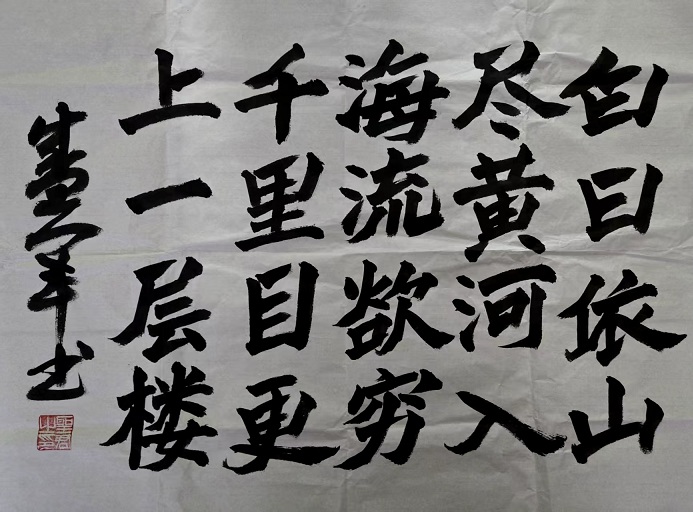 白日依山
尽黄河入
海流欲穷
千里目更
上一层楼
书